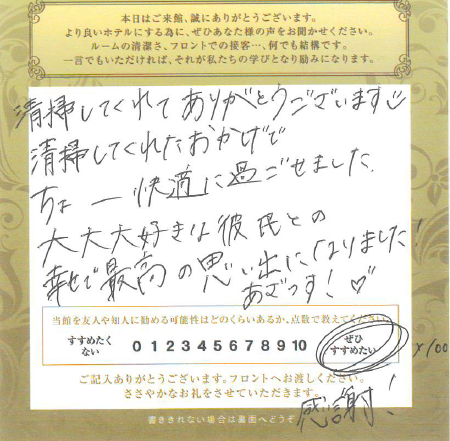 本日はご来館、誠にありがとうございます。
より良いホテルにする為に、ぜひあなた様の声をお聞かせください。
ルームの清潔さ、フロントでの接客…、何でも結構です。
一言でもいただければ、それが私たちの学びとなり励みになります。
清掃してくれてありがとうございます
清掃してくれたおかげで
ちょー快適に過ごせました
大大大好きな彼氏との
幸せで最高の思い出になりました!
あざっす!♡
当館を友人や知人に勧める可能性はどのくらいあるか、点数で教えてください。
すすめたくない 0 1 2 3 4 5 6 7 8 9 10 ぜひすすめたい ×100
ご記入ありがとうございます。フロントへお渡しください。
ささやかなお礼をさせていただきます。
感謝!
書ききれない場合は裏面へどうぞ